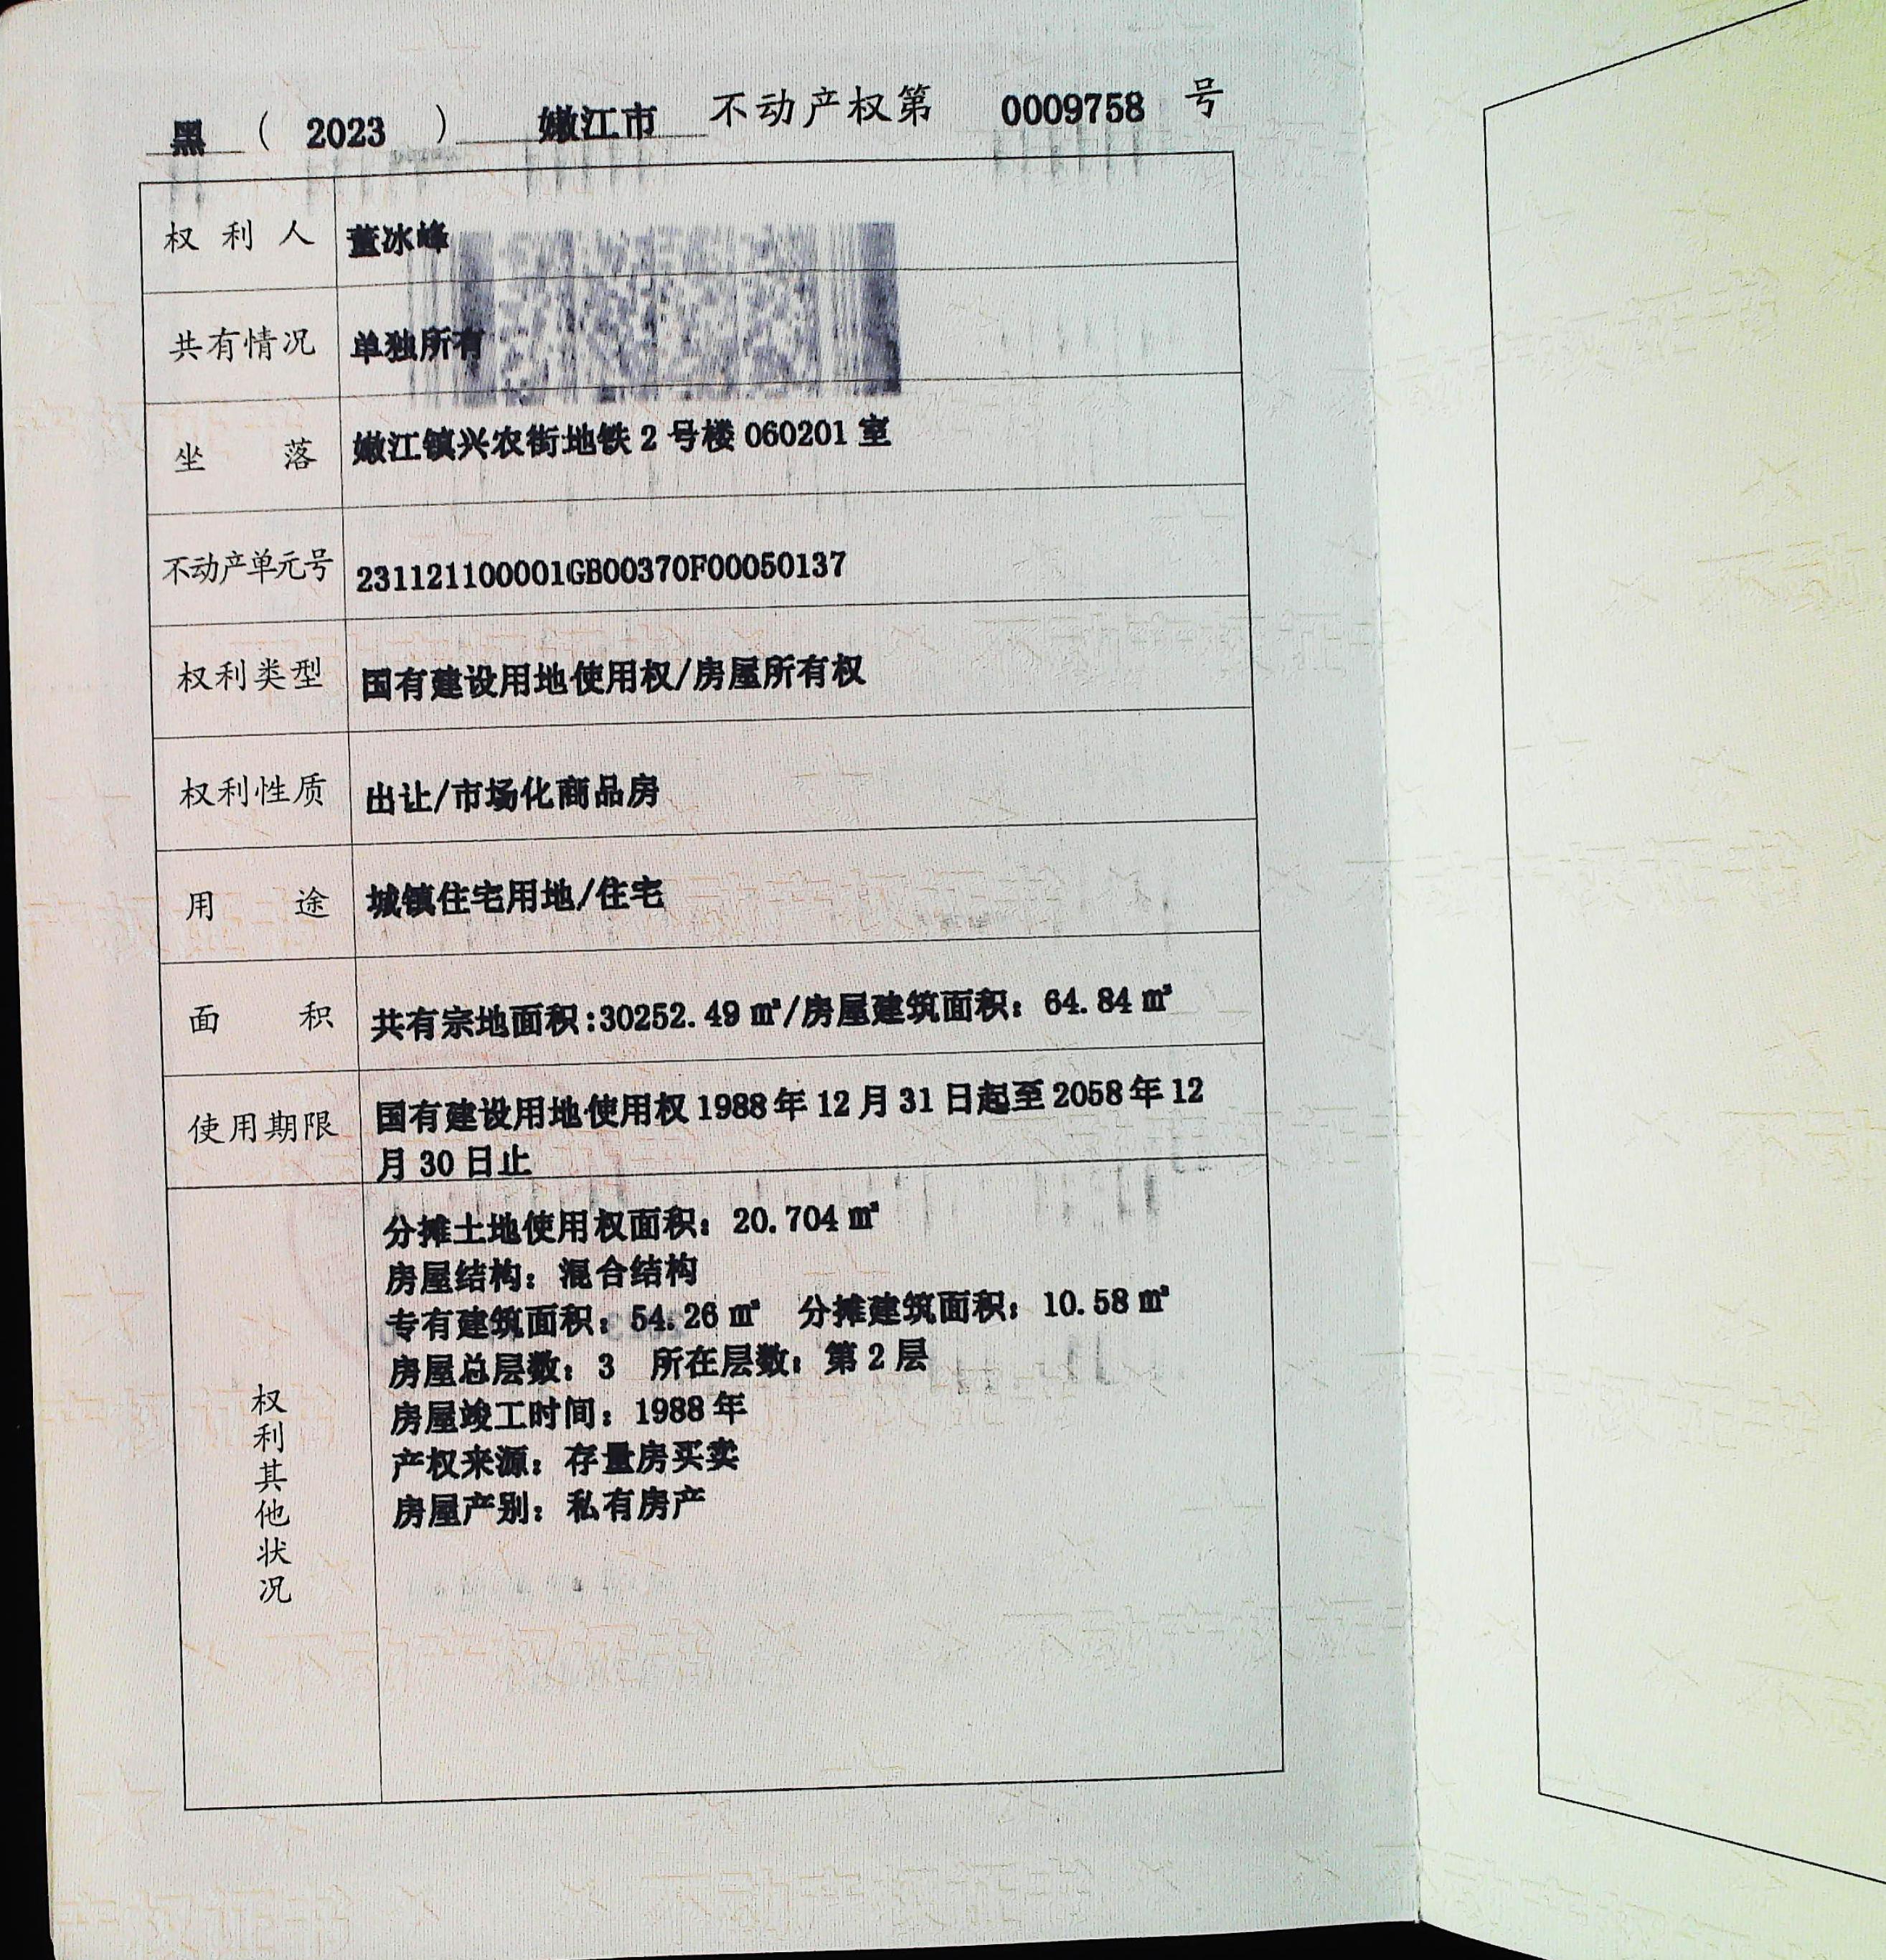 黑 ( 2023 ) 嫩江市 不动产权第 0009758 号
权利人 董冰峰
共有情况 单独所有
坐落 嫩江镇兴农街地铁 2 号楼 060201 室
不动产单元号 231121100001GB00370F00050137
权利类型 国有建设用地使用权/房屋所有权
权利性质 出让/市场化商品房
用途 城镇住宅用地/住宅
面积 共有宗地面积:30252.49 ㎡/房屋建筑面积: 64.84 ㎡
使用期限 国有建设用地使用权 1988 年 12 月 31 日起至 2058 年 12
月 30 日止
权利其他状况
分摊土地使用权面积: 20.704 ㎡
房屋结构: 混合结构
专有建筑面积: 54.26 ㎡ 分摊建筑面积: 10.58 ㎡
房屋总层数: 3 所在层数: 第 2 层
房屋竣工时间: 1988 年
产权来源: 存量房买卖
房屋产别: 私有房产